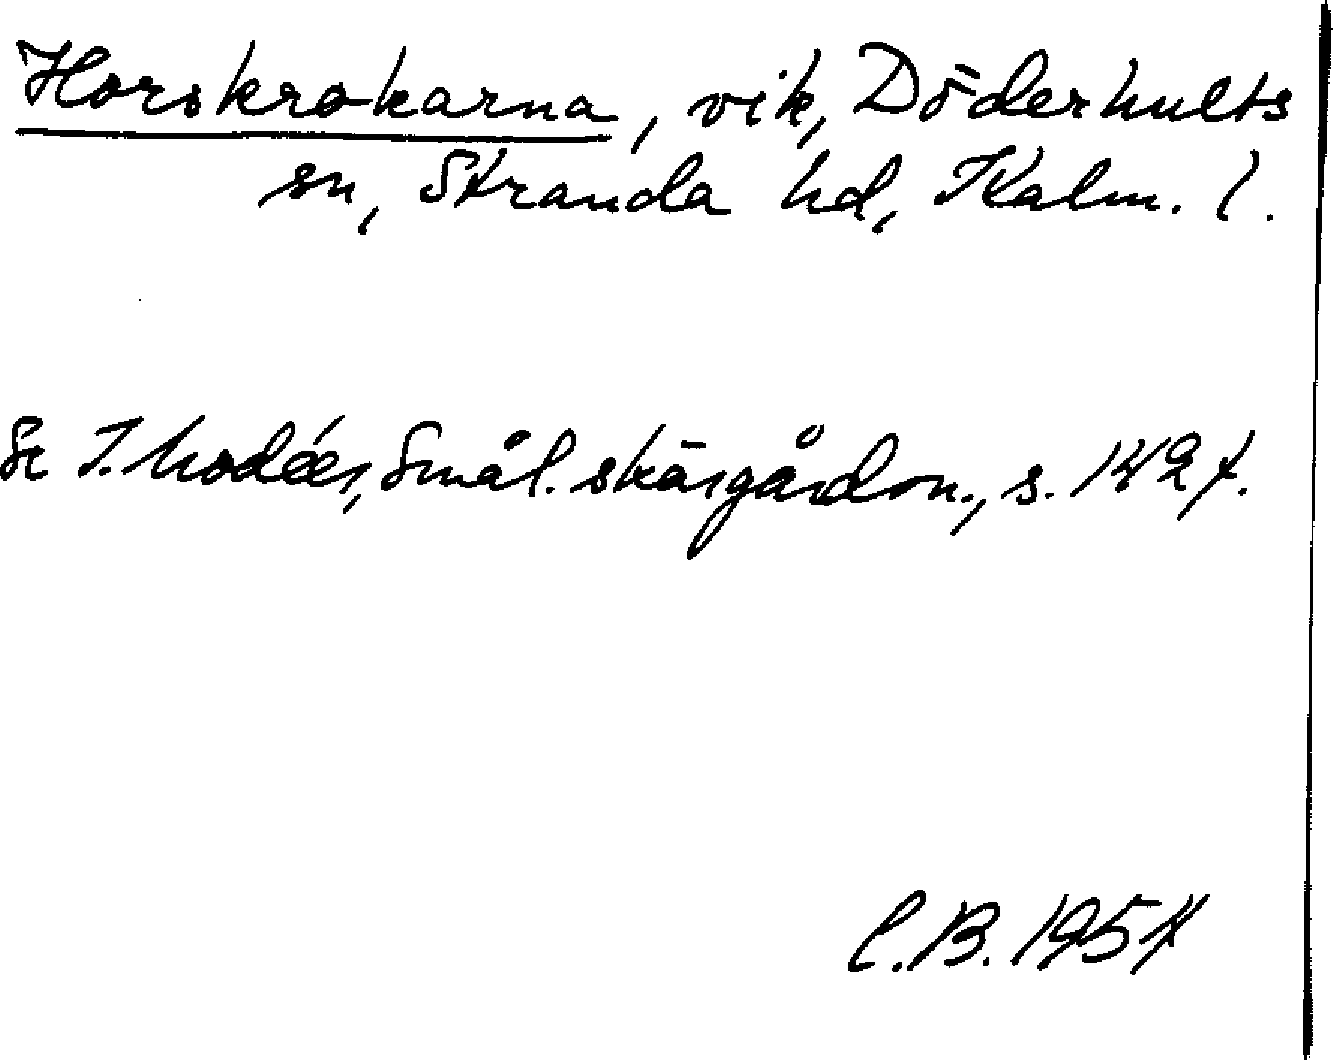 Horskrokarna, vik, Döderhults
sn, Stranda hd, Kalm. l.
Se I. Modéer, Smål. skärgårdsn., s. 142 f.
C.B. 1954